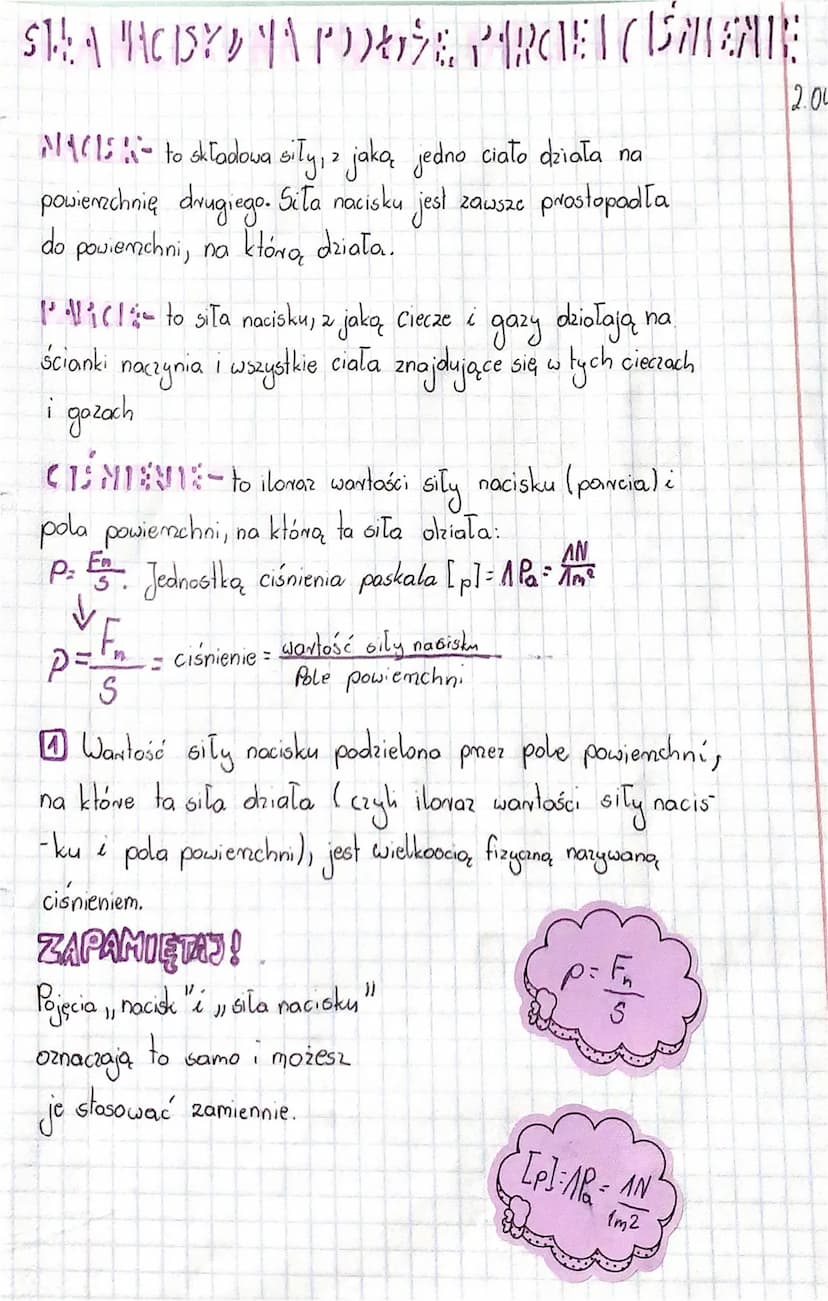 SIŁA NACISKU NA PODŁOŻE, PARCIE I CIŚNIENIE
2.04
NACISK- to składowa siły, z jaką jedno ciało działa na
powierzchnię drugiego. Siła nacisku jest zawsze prostopadła
do powierzchni, na którą działa.
PARCIE- to siła nacisku, z jaką ciecze i gazy działają na
ścianki naczynia i wszystkie ciała znajdujące się w tych cieczach
i gazach
CIŚNIENIE- to iloraz wartości siły nacisku (parcia) i
pola powierzchni, na którą ta siła działa:
p= Fn/S. Jednostką ciśnienia paskala [p]=1Pa= 1N/1m²
↓
p= Fn/S = ciśnienie = wartość siły nacisku / Pole powierzchni
1 Wartość siły nacisku podzielona przez pole powierzchni,
na które ta siła działa (czyli iloraz wartości siły nacis-
-ku i pola powierzchni), jest wielkoością fizyczną nazywaną
ciśnieniem.
ZAPAMIĘTAJ!
Pojęcia „nacisk" i „siła nacisku"
oznaczają to samo i możesz
je stosować zamiennie.
p= Fn/S
[p]=1Pa= 1N/1m2